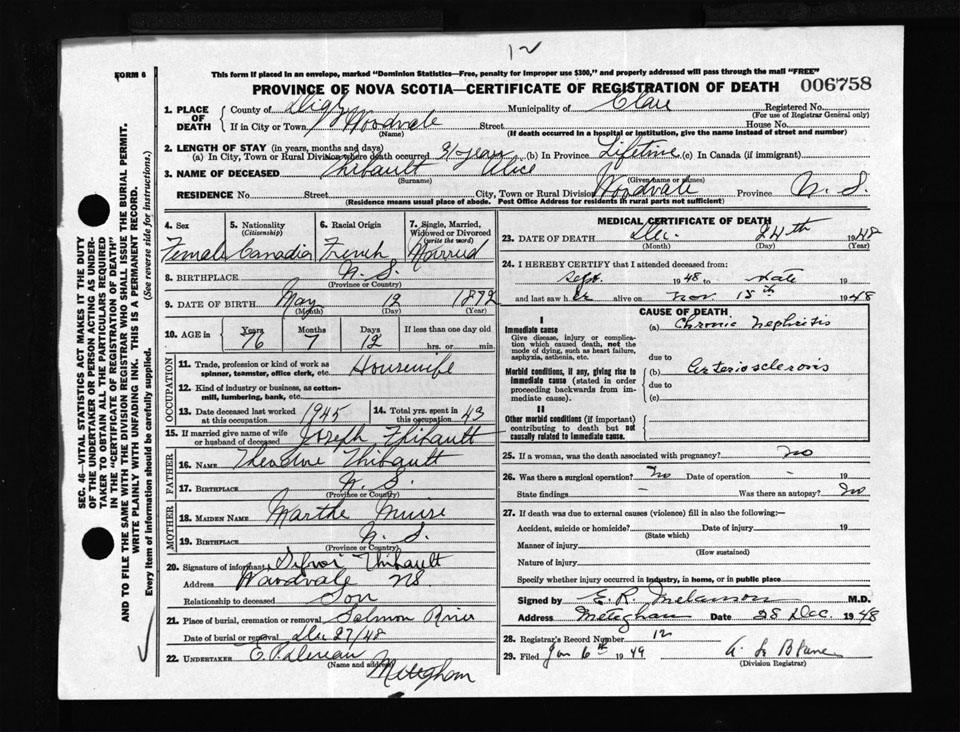 12
FORM 6
This form if placed in an envelope, marked "Dominion Statistics—Free, penalty for improper use $300," and properly addressed will pass through the mail "FREE"
PROVINCE OF NOVA SCOTIA—CERTIFICATE OF REGISTRATION OF DEATH 006758
1. PLACE OF DEATH County of Digby Municipality of Clare Registered No.
(For use of Registrar General only)
If in City or Town Woodvale Street House No.
(Name) (If death occurred in a hospital or institution, give the name instead of street and number)
2. LENGTH OF STAY (in years, months and days)
(a) In City, Town or Rural Division where death occurred 31 years (b) In Province Lifetime (c) In Canada (if immigrant)
3. NAME OF DECEASED Thibault Alice
(Surname) (Given name or names)
RESIDENCE No. Street City, Town or Rural Division Woodvale Province N. S.
(Residence means usual place of abode. Post Office Address for residents in rural parts not sufficient)
4. Sex 5. Nationality (Citizenship) 6. Racial Origin 7. Single, Married, Widowed or Divorced (write the word)
Female Canadian French Married
8. BIRTHPLACE N. S.
(Province or Country)
9. DATE OF BIRTH May 12 1872
(Month) (Day) (Year)
10. AGE in Years Months Days If less than one day old
76 7 12 hrs. or min.
OCCUPATION
11. Trade, profession or kind of work as spinner, teamster, office clerk, etc. Housewife
12. Kind of industry or business, as cotton-mill, lumbering, bank, etc.
13. Date deceased last worked at this occupation 1945 14. Total yrs. spent in this occupation 43
15. If married give name of wife or husband of deceased Joseph Thibault
FATHER
16. NAME Theodore Thibault
17. BIRTHPLACE N. S.
(Province or Country)
MOTHER
18. MAIDEN NAME Marthe Muise
19. BIRTHPLACE N. S.
(Province or Country)
20. Signature of informant Thibault
Address Woodvale NS
Relationship to deceased Son
21. Place of burial, cremation or removal Salmon River
Date of burial or removal Dec 27/48
22. UNDERTAKER
(Name and address) Meteghan
MEDICAL CERTIFICATE OF DEATH
23. DATE OF DEATH Dec. 24th 1948
(Month) (Day) (Year)
24. I HEREBY CERTIFY that I attended deceased from:
Sept. 1948 to date 19
and last saw her alive on Nov. 15th 1948
CAUSE OF DEATH
I
Immediate cause
Give disease, injury or complication which caused death, not the mode of dying, such as heart failure, asphyxia, asthenia, etc.
(a) Chronic Nephritis
due to
Morbid conditions, if any, giving rise to immediate cause (stated in order proceeding backwards from immediate cause).
(b) Arteriosclerosis
due to
(c)
II
Other morbid conditions (if important) contributing to death but not causally related to immediate cause.
25. If a woman, was the death associated with pregnancy? no
26. Was there a surgical operation? No Date of operation - 19
State findings - Was there an autopsy? No
27. If death was due to external causes (violence) fill in also the following:—
Accident, suicide or homicide? Date of injury 19
(State which)
Manner of injury
(How sustained)
Nature of injury
Specify whether injury occurred in industry, in home, or in public place
Signed by E. R. Melanson M.D.
Address Meteghan Date 28 Dec. 1948
28. Registrar's Record Number 12
29. Filed Jan 6th 1949
(Division Registrar)
SEC. 46—VITAL STATISTICS ACT MAKES IT THE DUTY
OF THE UNDERTAKER OR PERSON ACTING AS UNDER-
TAKER TO OBTAIN ALL THE PARTICULARS REQUIRED
IN THE "CERTIFICATE OF REGISTRATION OF DEATH"
AND TO FILE THE SAME WITH THE DIVISION REGISTRAR WHO SHALL ISSUE THE BURIAL PERMIT.
WRITE PLAINLY WITH UNFADING INK. THIS IS A PERMANENT RECORD.
Every item of information should be carefully supplied. (See reverse side for instructions.)